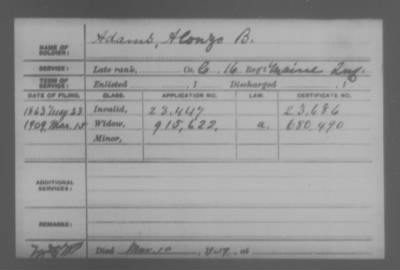 NAME OF SOLDIER: Adams, Alonzo B.
SERVICE: Late rank, Co. C, 16 Reg't Maine Inf.
TERM OF SERVICE: Enlisted , 1 Discharged , 1
DATE OF FILING. CLASS. APPLICATION NO. LAW. CERTIFICATE NO.
1863 Aug 23 Invalid, 28,447 23,686
1909, Mar. 15 Widow, 915,622, a. 680,490
Minor,
ADDITIONAL SERVICES:
REMARKS:
Died Mar. 10, 1909, at